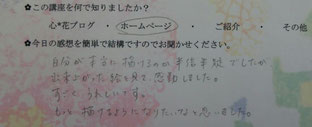 ✿この講座を何で知りましたか?
心*花ブログ ・ ホームページ ・ ご紹介 ・ その他
✿今日の感想を簡単で結構ですのでお聞かせください。
自分が本当に描けるのか半信半疑でしたが
出来上がった絵を見て感動しました。
すごくうれしいです。
もっと描けるようになりたいなと思いました。